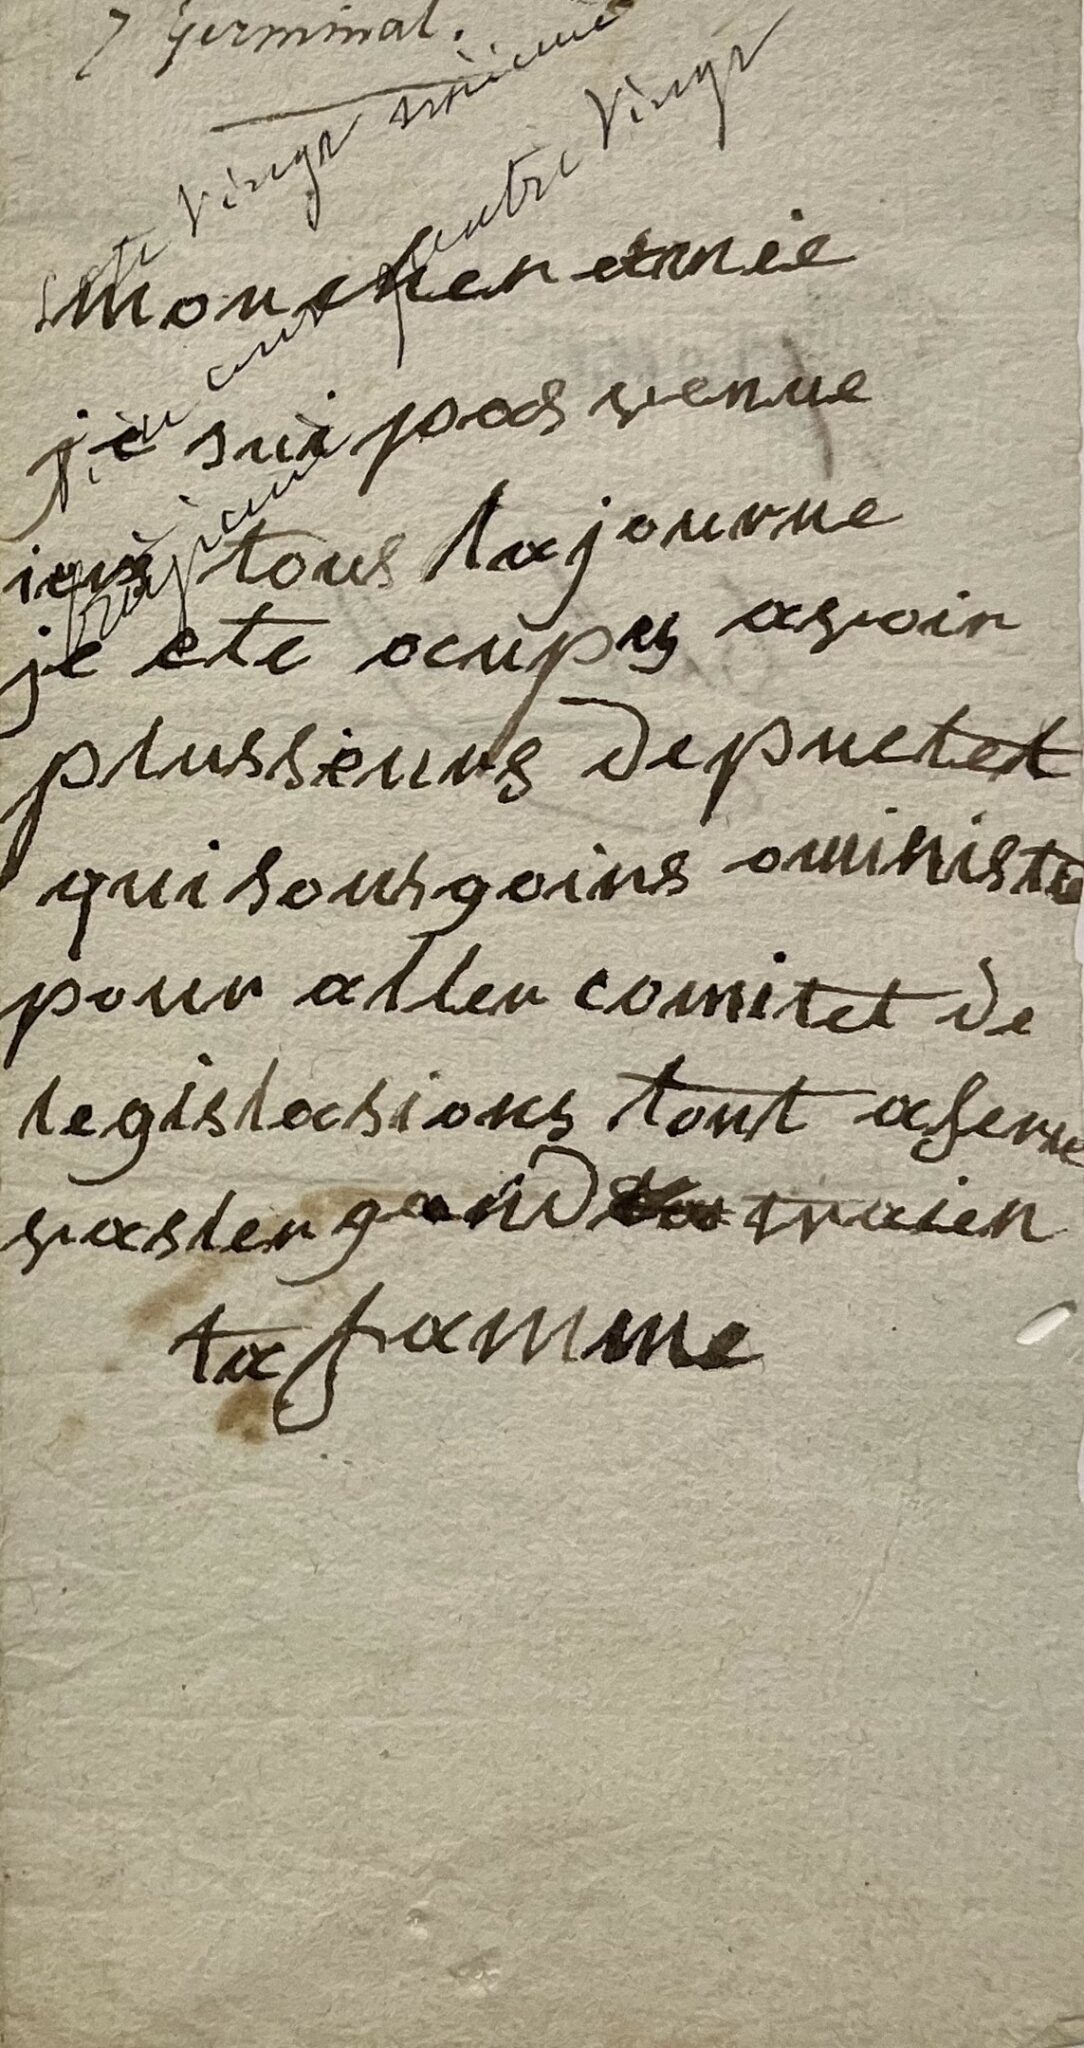 7 Germinal.
cote Vingt unieme
piece cent quatre Vingt
mon cher amie
je sui pas venue
isis tous la journe
je ete ocupy avoir
plussieurs deputet
qui sousgoins o ministe
pour aller comitet de
legislasions tout afere
vasler grand traien
ta famme